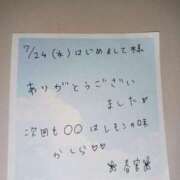 7/24(水)はじめまして様
ありがとうござい
ましたm
次回も〇〇はレモンの味
かしら♡♡